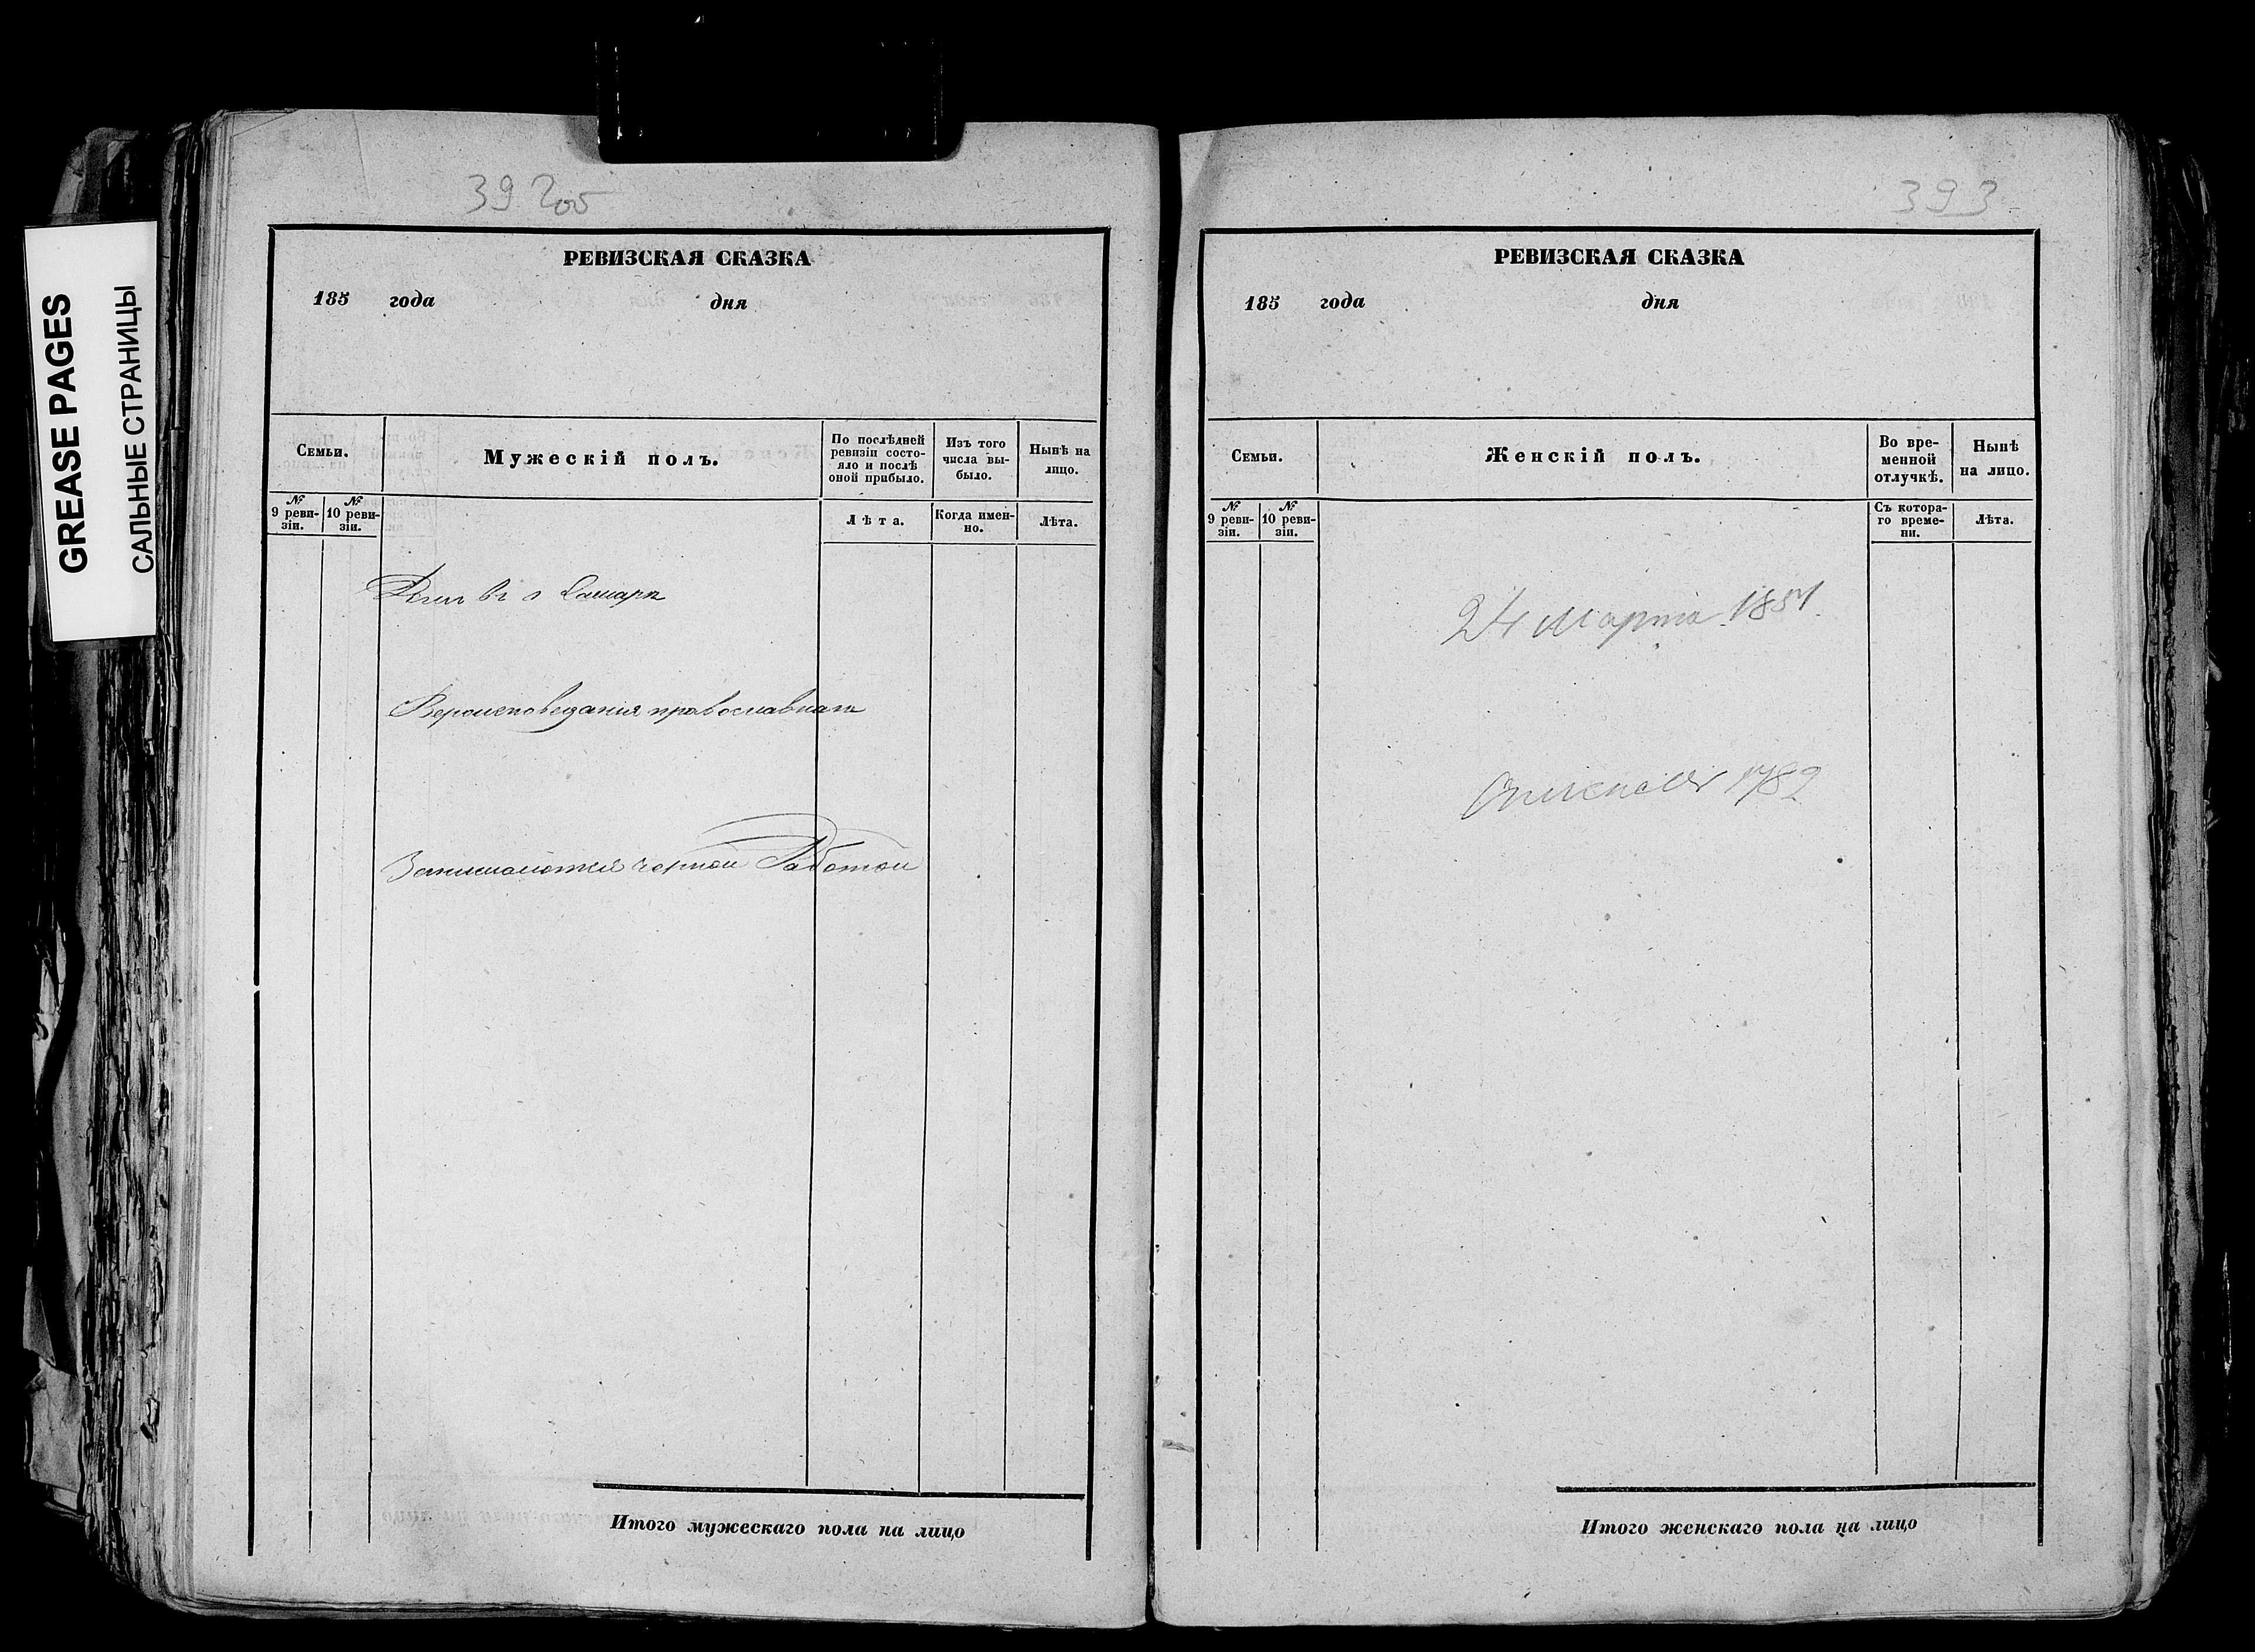 GREASE PAGES
САЛЬНЫЕ СТРАНИЦЫ
392об
РЕВИЗСКАЯ СКАЗКА
185 года дня
Семьи.
Мужескій полъ.
По послѣдней ревизіи состояло и послѣ оной прибыло.
Изъ того числа выбыло.
Нынѣ на лицо.
№ 9 ревизіи.
№ 10 ревизіи.
Лѣта.
Когда именно.
Лѣта.
въ г Самарѣ
Вероисповедания православнаго
Занимаются черной Работой
Итого мужескаго пола на лицо
393
РЕВИЗСКАЯ СКАЗКА
185 года дня
Семьи.
Женскій полъ.
Во временной отлучкѣ.
Нынѣ на лицо.
№ 9 ревизіи.
№ 10 ревизіи.
Съ котораго времени.
Лѣта.
24 Марта 1851.
1782
Итого женскаго пола на лицо